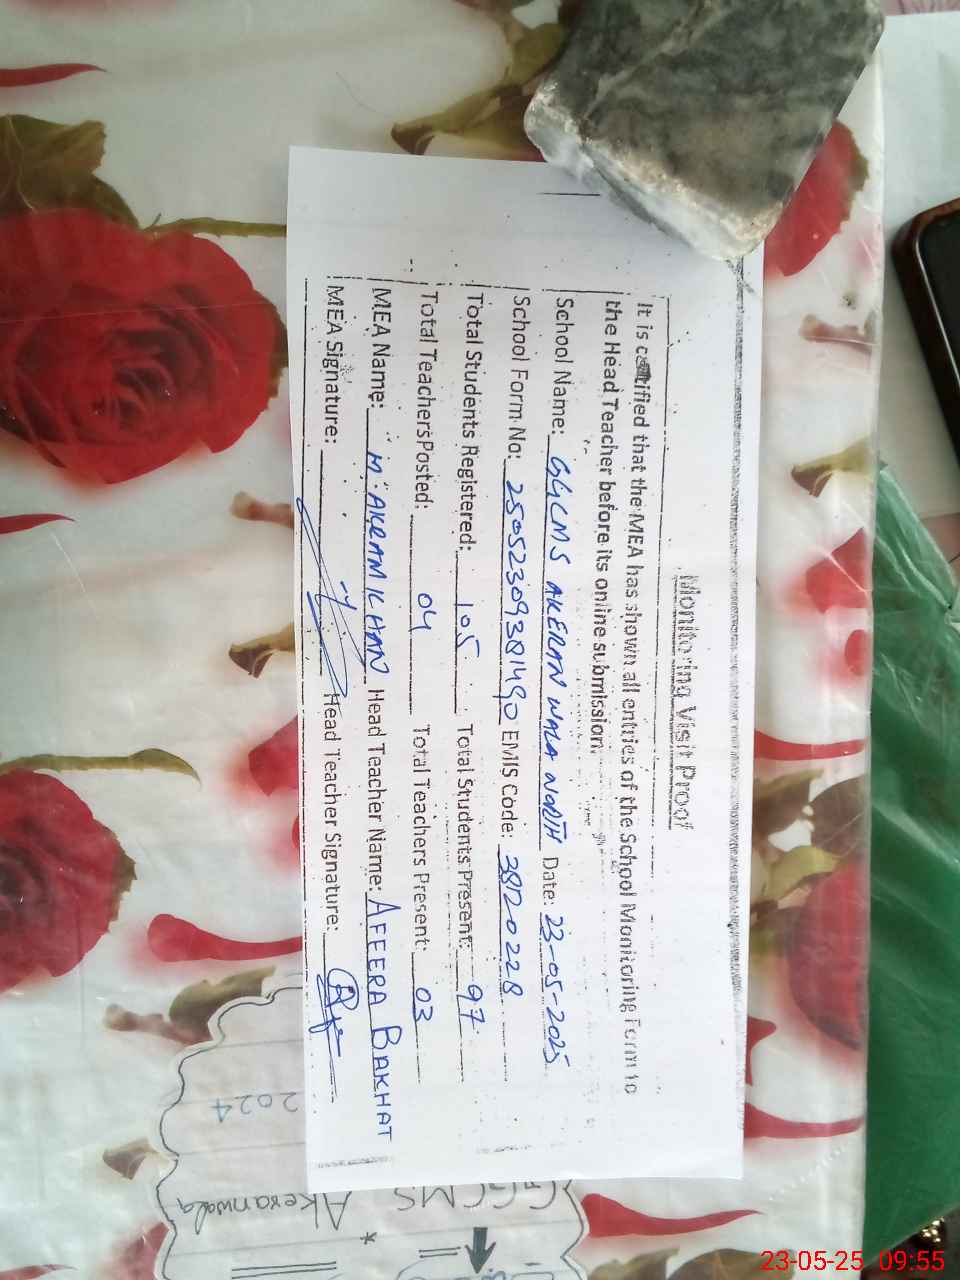 Monitoring Visit Proof
It is certified that the MEA has shown all entries of the School Monitoring Form to
the Head Teacher before its online submission.
School Name: GGCMS AKERAN WALA NORTH Date: 23-05-2025
School Form No: 25052309381490 EMIS Code: 38120228
Total Students Registered: 105 Total Students Present: 97
Total Teachers Posted: 04 Total Teachers Present: 03
MEA Name: M. AKRAM KHAN Head Teacher Name: AFEERA BAKHAT
MEA Signature: Head Teacher Signature:
2024
GGCMS
Akeranwala
23-05-25 09:55